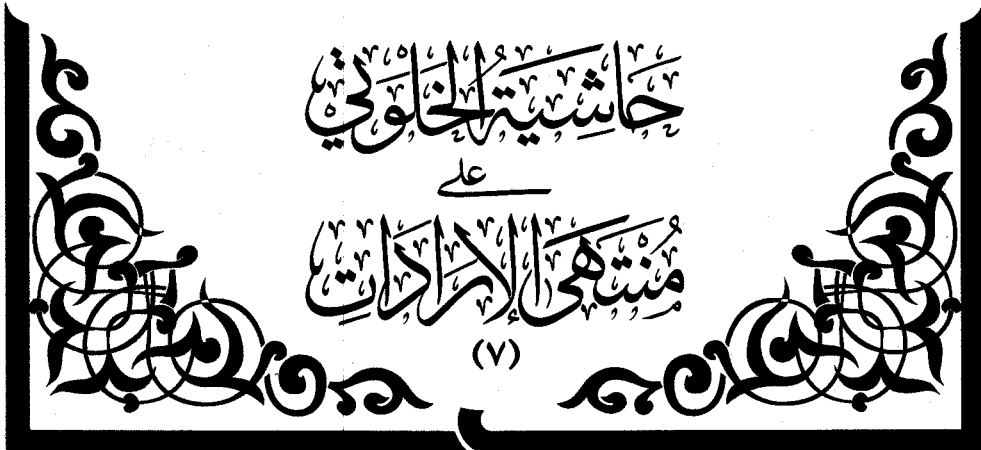 حَاشِيَةُ الخَلْوَتِي
على
مُنْتَهَى الإِرَادَاتِ
(٧)